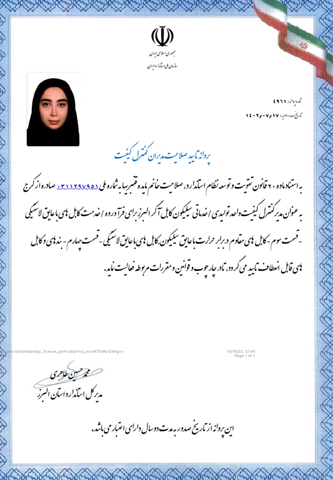 جمهوری اسلامی ایران
سازمان ملی استاندارد ایران
شماره پروانه: ۴۹۶۱
تاریخ صدور اولیه: ۱۴۰۲/۰۷/۱۷
پروانه تایید صلاحیت مدیران کنترل کیفیت
به استناد ماده ۲۰ قانون تقویت و توسعه نظام استاندارد، صلاحیت خانم مائده قنبر بیا به شماره ملی ۰۳۱۱۲۹۷۹۵۱ صادره از کرج
به عنوان مدیر کنترل کیفیت واحد تولیدی / خدماتی سیلیکون کابل آکر البرز برای فرآورده / خدمت کابل های با عایق لاستیکی
- قسمت سوم - کابل های مقاوم در برابر حرارت با عایق سیلیکون، کابل های با عایق لاستیکی - قسمت چهارم - بندها و کابل
های قابل انعطاف تایید می گردد، تا در چارچوب قوانین و مقررات مربوطه فعالیت نماید.
10/16/23, 12:49
Page 1 of 1
محمد حسین طاهری
مدیر کل استاندارد استان البرز
این پروانه از تاریخ صدور به مدت دو سال دارای اعتبار می باشد.